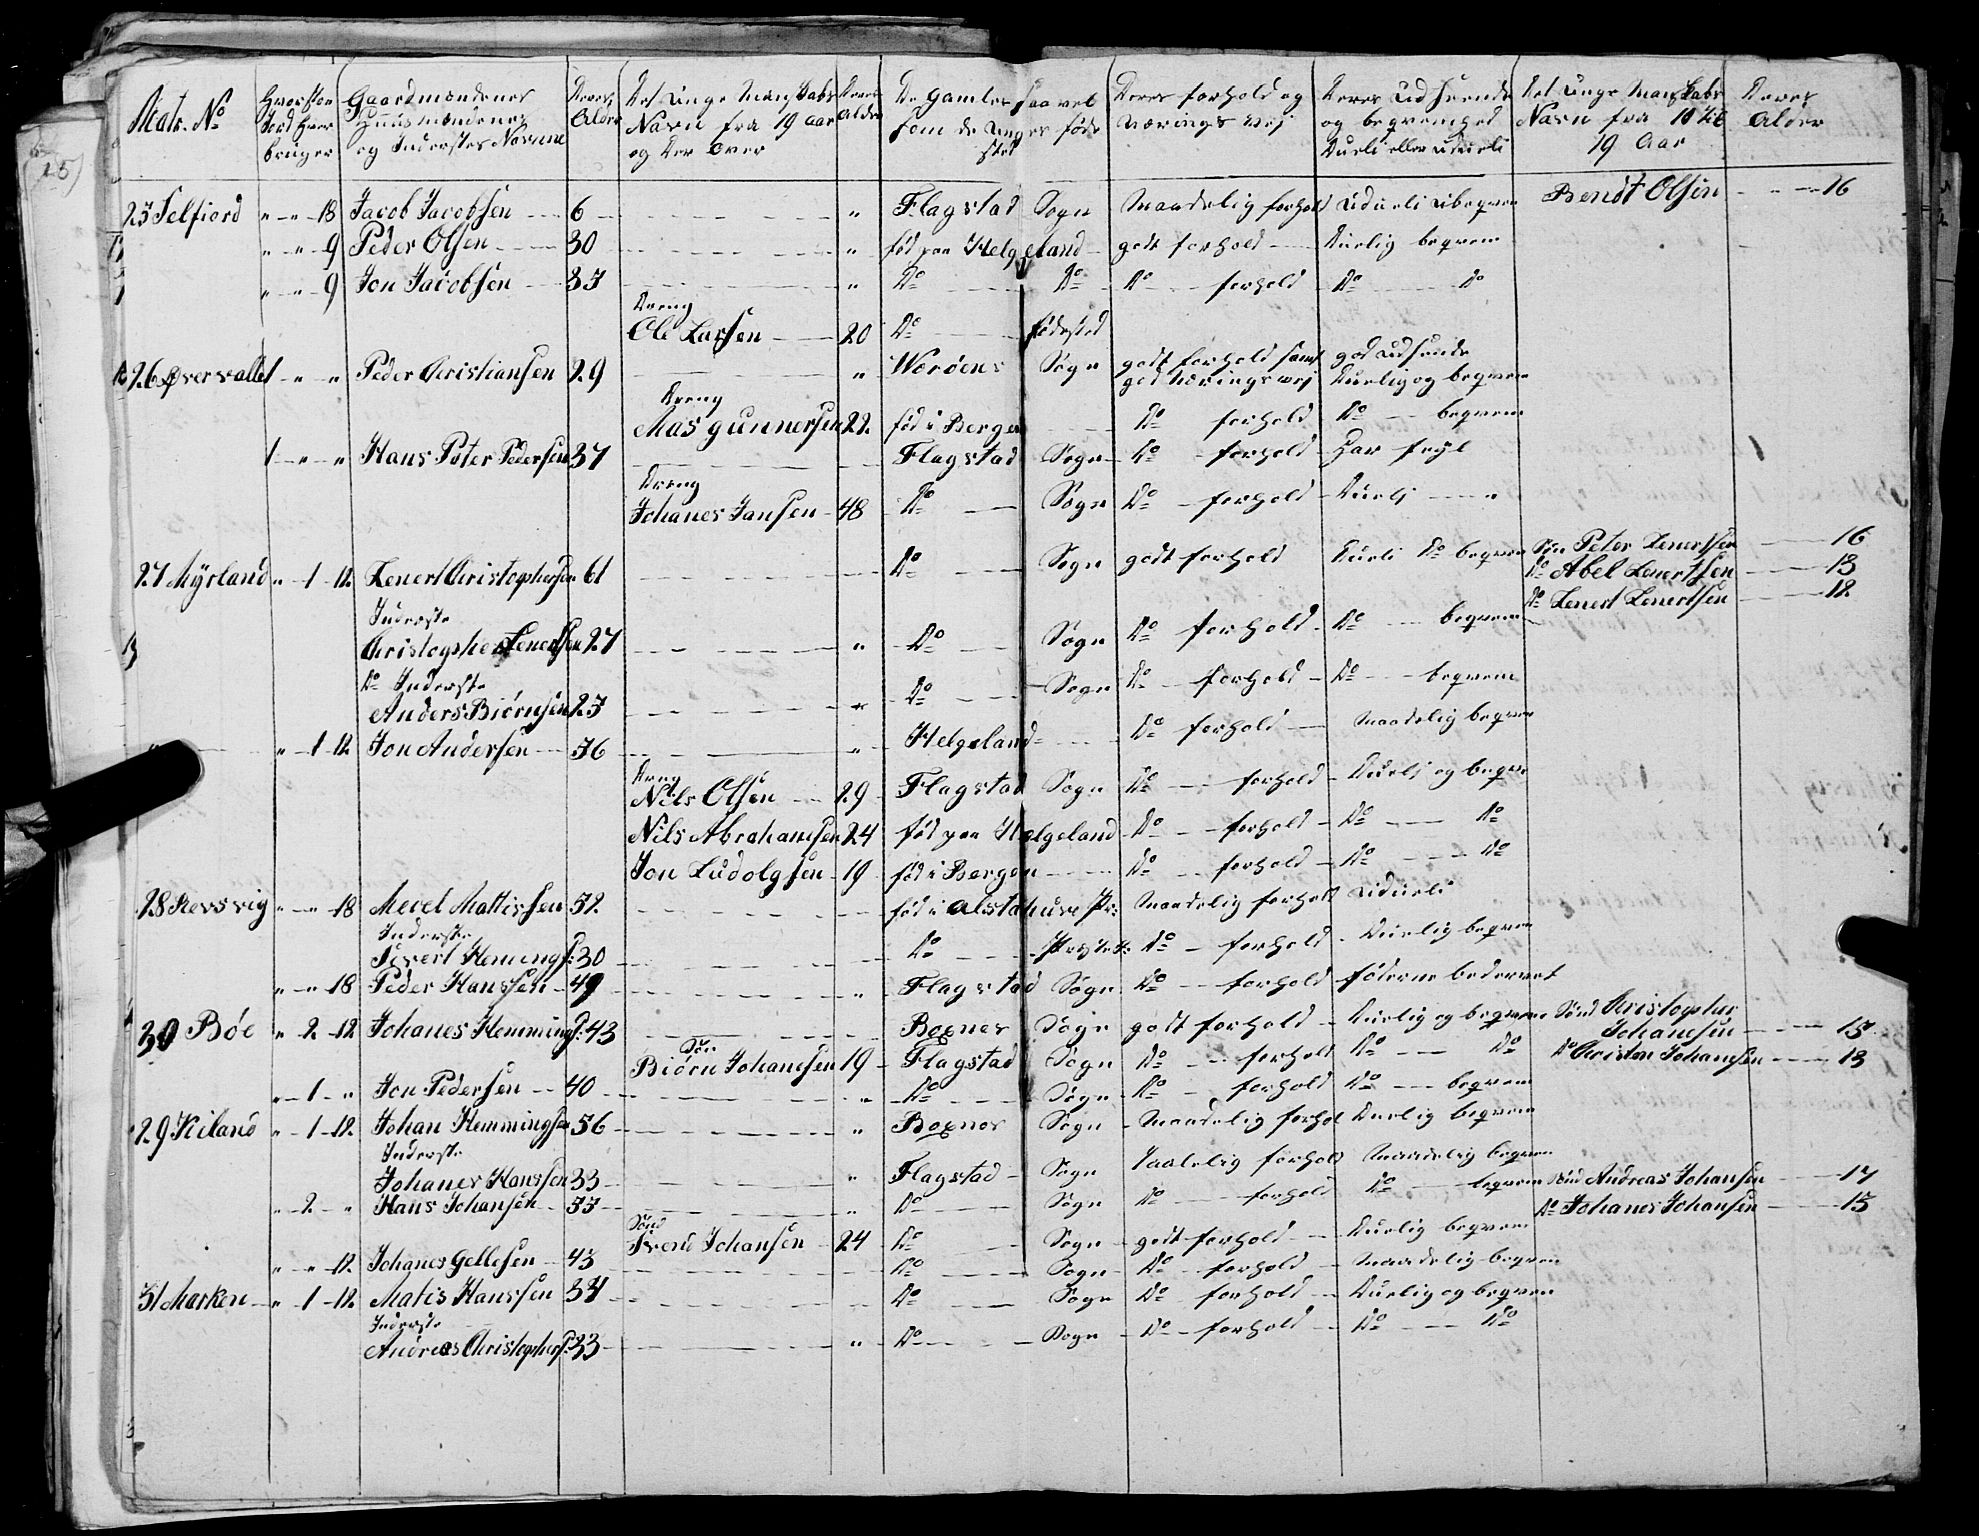 Matr. No | Hvor stor Jord hver bruger | Gaardmændenes Huusmændenes og Inderstes Navne | Deres Alder | Det Unge Manskabs Navn fra 19 aar og der over | Deres Alder | De Gamles saavel som de Ungesføde sted | Deres forhold og Nærings vej | Deres Udseende og beqvemhed Dueli eller udueli | Det Unge Manskabs Navn fra til 19 Aar | Deres Alder
25 Selfiord " " 18 Jacob Jacobsen 6 " Flagstad Sogn Maadelig forhold Udueli Ubeqvem Bendt Olsen 16
" " 9 Peder Olsen 30 " fød paa Helgeland godt forhold Duelig beqvem
" " 9 Jon Jacobsen 33 " Do Do Do forhold Do Do
Dreng
Ole Larsen 20 Do fødested
26 Øversvallet 1 " " Peder Christiansen 29 " Værøens Sogn godt forhold samt god Nærings vej god Udseende Duelig og beqvem
Dreng
Mas Gunnersen 22 fød i Bergen Do forhold Do beqvem
1 " " Hans Peter Pedersen 37 Flagstad Sogn Do forhold har fejl
Dreng
Johanes Jansen 48 Do Sogn Do forhold Dueli "
27 Myrland " 1 12 Lenert Christophersen 61 Do Sogn godt forhold Dueli Do beqvem Søn Peter Lenertsen 16
Do Abel Lenertsen 13
Do Lenert Lenertsen 12
Inderste
Christopher Lenertsen 27 " Do Sogn Do forhold Do beqvem
Do Inderste
Anders Biørnsen 23 " Do Sogn Do forhold Do beqvem
" " 1 12 Jon Andersen 56 " Helgeland Do forhold Maadelig beqvem
Dreng
Nils Olsen 29 Flagstad Sogn Do forhold Dueli og beqve
Nils Abrahamsen 24 fød paa Helgeland Do forhold Do Do
Jon Ludolgsen 19 fød i Bergen Do forhold Do Do
28 Revsvig " " 18 Mevel Mattissen 52 fød i Alstahuve Pr: Maadelig forhold Udueli
Inderste
Sivert Heming s: 30 Do Præstet: Do forhold Duelig beqvem
" " 18 Peder Hanssen 49 " Flagstad Sogn Do forhold føderne bedervet
30 Bøe " 2 12 Johanes Hemmings: 43 Boxnes Sogn godt forhold Duelig og beqvem Sønd Christopher Johansen 15
Søn
Biørn Johansen 19 Flagstad Sogn Do forhold Do Do Do Christen Johansen 13
" 1 " Jon Pedersen 40 " Do Sogn Do forhold Do beqvem
29 Kiland " 1 12 Johan Hemmingsen 56 " Boxnes Sogn Maadelig forhol Duelig beqvem
Inderste
Johanes Hanssen 33 " Flagstad Sogn Taalelig forhold Maadelig beqvem
" 2 " Hans Johansen 53 " Do Sogn Do forhold Do beqvem Sønd Andreas Johansen 17
Do Johanes Johansen 15
Sønd
Svend Johansen 24 Do Sogn godt forhold Duelig beqvem
" " 12 Johanes Gellesen 43 Do Sogn Do forhold Maadelig beqvem
31 Marken " 1 12 Matis Hanssen 34 Do Sogn Do forhold Duelig og beqvem
Inderste
Andreas Christophers: 33 " Do Sogn Do forhold Do Do